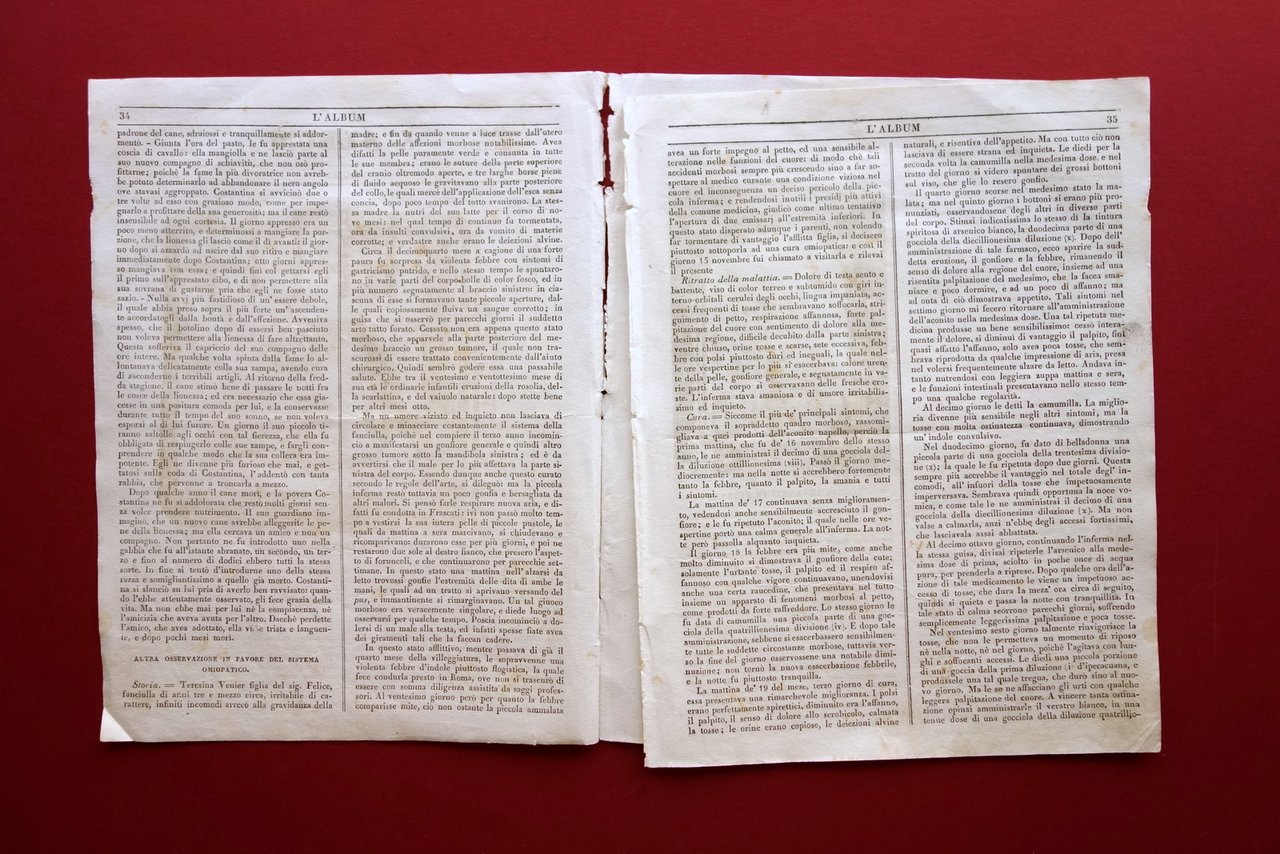 34
L'ALBUM
padrone del cane, sdraiossi e tranquillamente si addor-
mentò. - Giunta l'ora del pasto, le fu apprestata una
coscia di cavallo: ella mangiolla e ne lasciò parte al
suo nuovo compagno di schiavitù, che non osò pro-
fittarne; poichè la fame la più divoratrice non avreb-
be potuto determinarlo ad abbandonare il nero angolo
ove stavasi aggroppato. Costantina si avvicinò due o
tre volte ad esso con grazioso modo, come per impe-
gnarlo a profittare della sua generosità; ma il cane restò
insensibile ad ogni cortesia. Il giorno appresso era un
poco meno atterrito, e determinossi a mangiare la por-
zione, che la lionessa gli lasciò come il dì avanti il gior-
no dopo si azzardò ad uscire dal suo ritiro e mangiare
immediatamente dopo Costantina; otto giorni appres-
so mangiava con essa; e quindi finì col gettarsi egli
il primo sull'apprestato cibo, e di non permettere alla
sua sovrana di gustarne pria che egli ne fosse stato
sazio. - Nulla avvi più fastidioso di un' essere debole,
il quale abbia preso sopra il più forte un'ascenden-
te accordatogli dalla bontà e dall'affezione. Avveniva
spesso, che il botolino dopo di essersi ben pasciuto
non voleva permettere alla lionessa di fare altrettanto.
Questa sofferiva il capriccio del suo compagno delle
ore intere. Ma qualche volta spinta dalla fame lo al-
lontanava delicatamente colla sua zampa, avendo cura
di asconderne i terribili artigli. Al ritorno della fred-
da stagione, il cane stimò bene di passare le notti fra
le cosce della lionessa; ed era necessario che essa gia-
cesse in una positura comoda per lui, e la conservasse
durante tutto il tempo del suo sonno, se non voleva
esporsi al di lui furore. Un giorno il suo piccolo ti-
ranno saltolle agli occhi con tal fierezza, che ella fu
obbligata di respingerlo colle sue zampe, e fargli com-
prendere in qualche modo che la sua collera era im-
potente. Egli ne divenne più furioso che mai, e get-
tatosi sulla coda di Costantina, l'addentò con tanta
rabbia, che pervenne a troncarla a mezzo.
Dopo qualche anno il cane morì, e la povera Co-
stantina ne fu sì addolorata che restò molti giorni sen-
za voler prendere nutrimento. Il suo guardiano im-
maginò, che un nuovo cane avrebbe alleggerite le pe-
ne della lionessa; ma ella cercava un amico e non un
compagno. Non pertanto ne fu introdotto uno nella
gabbia che fu all'istante sbranato, un secondo, un ter-
zo e fino al numero di dodici ebbero tutti la stessa
sorte. In fine si tentò d'introdurne uno della stessa
razza e somigliantissimo a quello già morto. Costanti-
na si slanciò su lui pria di averlo ben ravvisato: quando
l'ebbe attentamente osservato, gli fece grazia della
vita. Ma non ebbe mai per lui nè la compiacenza, nè
l'amicizia che aveva avuta per l'altro. Dacchè perdette
l'amico, che avea adottato, ella visse trista e languen-
te, e dopo pochi mesi morì.
ALTRA OSSERVAZIONE IN FAVORE DEL SISTEMA
OMIOPATICO.
Storia. = Teresina Venier figlia del sig. Felice,
fanciulla di anni tre e mezzo circa, irritabile di ca-
rattere, infiniti incomodi arrecò alla gravidanza della
madre; e fin da quando venne a luce trasse dall'utero
materno delle affezioni morbose notabilissime. Avea
difatti la pelle puramente verde e consunta in tutte
le sue membra; erano le suture della parte superiore
del cranio oltremodo aperte, e tre larghe borse piene
di fluido acquoso le gravitavano alla parte posteriore
del collo, le quali mercè dell'applicazione dell'esca senza
concia, dopo poco tempo del tutto svanirono. La stes-
sa madre la nutrì del suo latte per il corso di no-
ve mesi: nel qual tempo di continuo fu tormentata,
ora da insulti convulsivi, ora da vomito di materie
corrotte; e verdastre anche erano le deiezioni alvine.
Circa il decimoquarto mese a cagione di una forte
paura fu sorpresa da violenta febbre con sintomi di
gastricismo putrido, e nello stesso tempo le spuntaro-
no in varie parti del corpo bolle di color fosco, ed in
più numero segnatamente al braccio sinistro: in cia-
scuna di esse si formavano tante piccole aperture, dal-
le quali copiosamente fluiva un sangue corrotto; in
guisa che si osservò per parecchi giorni il suddetto
arto tutto forato. Cessato non era appena questo stato
morboso, che apparvele alla parte posteriore del me-
desimo braccio un grosso tumore, il quale non tra-
scurossi di essere trattato convenientemente dall'aiuto
chirurgico. Quindi sembrò godere essa una passabile
salute. Ebbe tra il ventesimo e ventottesimo mese di
sua età le ordinarie infantili eruzioni della rosolia, del-
la scarlattina, e del vaiuolo naturale: dopo stette bene
per altri mesi otto.
Ma un umore viziato ed inquieto non lasciava di
circolare e minacciare costantemente il sistema della
fanciulla, poichè nel compiere il terzo anno incomin-
ciò a manifestarsi un gonfiore generale e quindi altro
grosso tumore sotto la mandibola sinistra; ed è da
avvertirsi che il male per lo più affettava la parte si-
nistra del corpo. Essendo dunque anche questo curato
secondo le regole dell'arte, si dileguò: ma la piccola
inferma restò tuttavia un poco gonfia e bersagliata da
altri malori. Si pensò farle respirare nuova aria, e di-
fatti fu condotta in Frascati: ivi non passò molto tem-
po a vestirsi la sua intera pelle di piccole pustole, le
quali da mattina a sera marcivano, si chiudevano e
ricomparivano: durarono esse per più giorni, e poi ne
restarono due sole al destro fianco, che preserò l'aspet-
to di foruncoli, e che continuarono per parecchie set-
timane. In questo stato una mattina nell'alzarsi da
letto trovossi gonfie l'estremità delle dita di ambe le
mani, le quali ad un tratto si aprivano versando del
pus, e immantinente si rimarginavano. Un tal giuoco
morboso era veracemente singolare, e diede luogo ad
osservarsi per qualche tempo. Poscia incominciò a do-
lersi di un male alla testa, ed infatti spesse fiate avea
dei giramenti tali che la facean cadere.
In questo stato afflittivo, mentre passava di già il
quarto mese della villeggiatura, le sopravvenne una
violenta febbre d'indole piuttosto flogistica, la quale
fece condurla presto in Roma, ove non si trascurò di
essere con somma diligenza assistita da saggi profes-
sori. Al ventesimo giorno però per quanto la febbre
comparisse mite, ciò non ostante la piccola ammalata
35
L'ALBUM
avea un forte impegno al petto, ed una sensibile al-
terazione nelle funzioni del cuore: di modo chè tali
accidenti morbosi sempre più crescendo sino a far so-
spettare al medico curante una condizione viziosa nel
cuore ed inconseguenza un deciso pericolo della pic-
cola inferma; e rendendosi inutili i presidj più attivi
della comune medicina, giudicò come ultimo tentativo
l'apertura di due emissarj all'estremità inferiori. In
questo stato disperato adunque i parenti, non volendo
far tormentare di vantaggio l'afflitta figlia, si decisero
piuttosto sottoporla ad una cura omiopatica: e così il
giorno 15 novembre fui chiamato a visitarla e rilevai
il presente
Ritratto della malattia. = Dolore di testa acuto e
battente, viso di color terreo e subtumido con giri in-
terno-orbitali cerulei degli occhi, lingua impaniata, ac-
cessi frequenti di tosse che sembravano soffocarla, stri-
guimento di petto, respirazione affannosa, forte pal-
pitazione del cuore con sentimento di dolore alla me-
desima regione, difficile decubito dalla parte sinistra;
ventre chiuso, orine tosse e scarse, sete eccessiva, feb-
bre con polsi piuttosto duri ed ineguali, la quale nel-
le ore vespertine per lo più s'esacerbava: calore uren-
te della pelle, gonfiore generale, e segnatamente in va-
rie parti del corpo si osservavano delle fresche cro-
ste. L'inferma stava smaniosa e di umore irritabilis-
simo ed inquieto.
Cura. = Siccome il più de' principali sintomi, che
componeva il sopraddetto quadro morboso, rassomi-
gliava a quei prodotti dell'aconito napello, perciò la
prima mattina, che fu de' 16 novembre dello stesso
anno, le ne amministrai il decimo di una gocciola del-
la diluzione ottillionesima (viii). Passò il giorno me-
diocremente: ma nella notte si accrebbero fortemente
tanto la febbre, quanto il palpito, la smania e tutti
i sintomi.
La mattina de' 17 continuava senza miglioramen-
to, vedendosi anche sensibilmente accresciuto il gon-
fiore; e le fu ripetuto l'aconito; il quale nelle ore ve-
spertine portò una calma generale all'inferma. La not-
te però passolla alquanto inquieta.
Il giorno 18 la febbre era più mite, come anche
molto diminuito si dimostrava il gonfiore della cute;
solamente l'urtante tosse, il palpito ed il respiro af-
fannoso con qualche vigore continuavano, unendovisi
anche una certa raucedine, che presentava nel tutto
insieme un apparato di fenomeni morbosi al petto,
come prodotti da forte raffreddore. Lo stesso giorno le
fu data di camumilla una piccola parte di una goc-
ciola della quatrillionesima divisione (iv). E dopo tale
amministrazione, sebbene si esacerbassero sensibilmen-
te tutte le suddette circostanze morbose, tuttavia ver-
so la fine del giorno osservossene una notabile dimi-
nuzione; non tornò la nuova esacerbazione febbrile,
e la notte fu piuttosto tranquilla.
La mattina de' 19 del mese, terzo giorno di cura,
essa presentava una rimarchevole miglioranza. I polsi
erano perfettamente apirettici, diminuito era l'affanno,
il palpito, il senso di dolore allo scrobicolo, calmata
la tosse; le orine erano copiose, le deiezioni alvine
naturali, e risentiva dell'appetito. Ma con tutto ciò non
lasciava di essere strana ed inquieta. Le diedi per la
seconda volta la camumilla nella medesima dose, e nel
tratto del giorno si videro spuntare dei grossi bottoni
sul viso, che glie lo resero gonfio.
Il quarto giorno scorse nel medesimo stato la ma-
lata; ma nel quinto giorno i bottoni si erano più pro-
nunziati, osservandosene degli altri in diverse parti
del corpo. Stimai indicatissimo lo stesso dì la tintura
spiritosa di arsenico bianco, la duodecima parte di una
gocciola della diecillionesima diluzione (x). Dopo dell'
amministrazione di tale farmaco, ecco sparire la sud-
detta eruzione, il gonfiore e la febbre, rimanendo il
senso di dolore alla regione del cuore, insieme ad una
risentita palpitazione del medesimo, che la facea sma-
niare e poco dormire, e ad un poco di affanno; ma
ad onta di ciò dimostrava appetito. Tali sintomi nel
settimo giorno mi fecero ritornare all'amministrazione
dell'aconito nella medesima dose. Una tal ripetuta me-
dicina produsse un bene sensibilissimo: cessò intera-
mente il dolore, si diminuì di vantaggio il palpito, finì
quasi affatto l'affanno, solo avea poca tosse, che sem-
brava riprodotta da qualche impressione di aria, presa
nel volersi frequentemente alzare da letto. Andava in-
tanto nutrendosi con leggiera zuppa mattina e sera,
e le funzioni intestinali presentavano nello stesso tem-
po una qualche regolarità.
Al decimo giorno le detti la camumilla. La miglio-
ria divenne più sensibile negli altri sintomi, ma la
tosse con molta ostinatezza continuava, dimostrando
un'indole convulsivo.
Nel duodecimo giorno, fu dato di belladonna una
piccola parte di una gocciola della trentesima divisio-
ne (x); la quale le fu ripetuta dopo due giorni. Questa
sempre più accrebbe il vantaggio nel totale degl' in-
comodi, all' infuori della tosse che impetuosamente
imperversava. Sembrava quindi opportuna la noce vo-
mica, e come tale le ne amministrai il decimo di una
gocciola della diecillionesima diluzione (x). Ma non
valse a calmarla, anzi n'ebbe degli accessi fortissimi,
che lasciavala assai abbattuta.
Al decimo ottavo giorno, continuando l'inferma nel-
la stessa guisa, divisai ripeterle l'arsenico alla medesi-
ma dose di prima, sciolto in poche once di acqua
pura, per prenderla a riprese. Dopo qualche ora dell'a-
zione di tale medicamento le viene un impetuoso ac-
cesso di tosse, che dura la mezz' ora circa di seguito,
quindi si quieta e passa la notte con tranquillità. In
tale stato di calma scorrono parecchi giorni, soffrendo
semplicemente leggerissima palpitazione e poca tosse.
Nel ventesimo sesto giorno talmente rinvigorisce la
tosse, che non le permetteva un momento di riposo
nè nella notte, nè nel giorno, poichè l'agitava con lun-
ghi e soffocanti accessi. Le diedi una piccola porzione
di una goccia della prima diluzione [i] d'ipecacuana, e
produssele una tal quale tregua, che durò sino al nuo-
vo giorno. Ma le se ne affacciano gli urti con qualche
leggera palpitazione del cuore. A vincere tanta ostina-
zione opinai amministrarle il veratro bianco, in una
tenue dose di una gocciola della diluzione quatrillio-